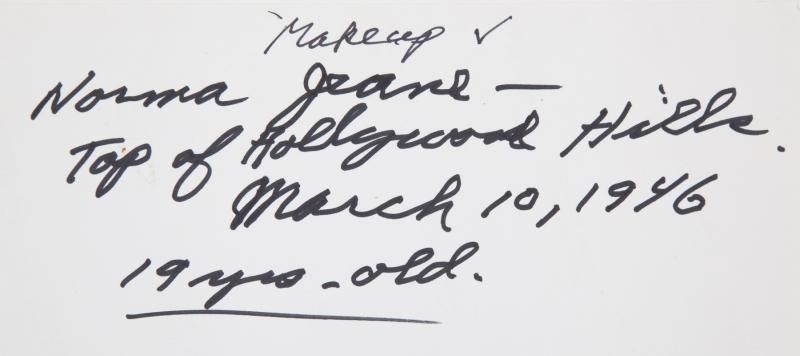 Makeup ✓
Norma Jeane —
Top of Hollywood Hills.
March 10, 1946
19 yrs-old.